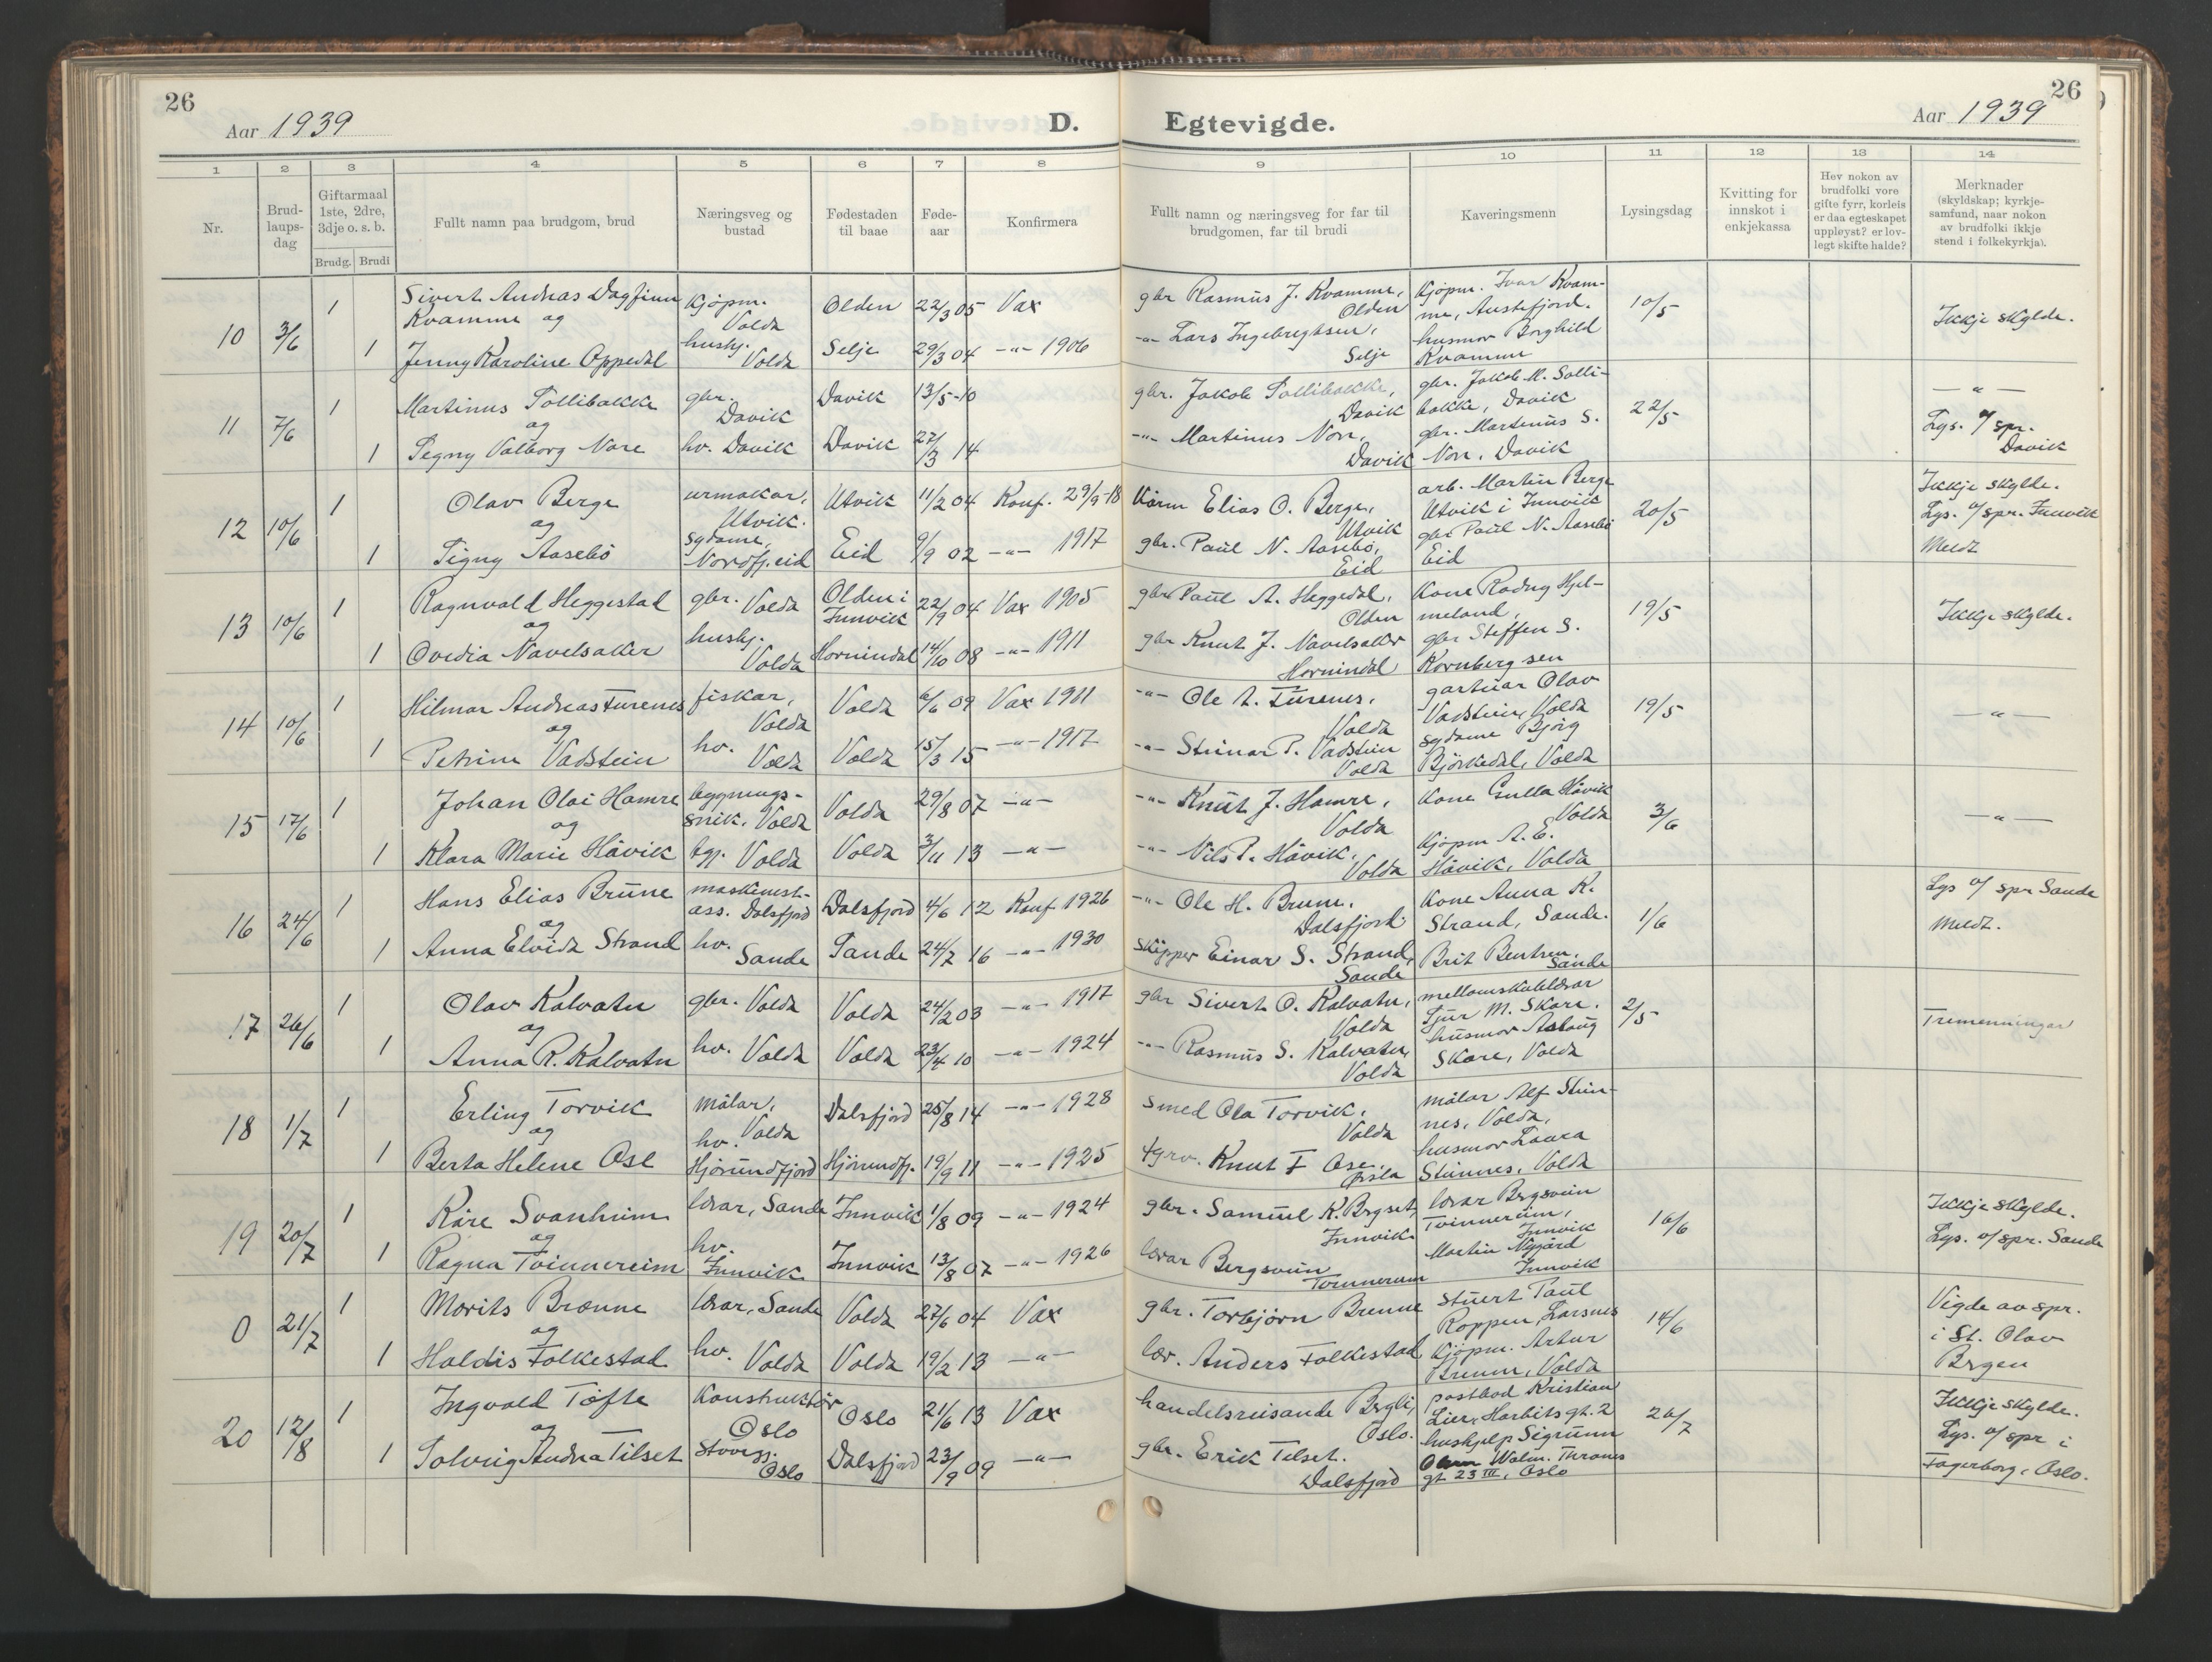 26
Aar 1939
D. Egtevigde.
26
Aar 1939
1 2 3 4 5 6 7 8 9 10 11 12 13 14
Nr.
Brud-
laups-
dag
Giftarmaal
1ste, 2dre,
3dje o. s. b.
Brudg. Brudi
Fullt namn paa brudgom, brud
Næringsveg og
bustad
Fødestaden
til baae
Føde-
aar
Konfirmera
Fullt namn og næringsveg for far til
brudgomen, far til brudi
Kaveringsmenn
Lysingsdag
Kvitting for
innskot i
enkjekassa
Hev nokon av
brudfolki vore
gifte fyrr, korleis
er daa egteskapet
uppløyst? er lov-
legt skifte halde?
Merknader
(skyldskap; kyrkje-
samfund, naar nokon
av brudfolki ikkje
stend i folkekyrkja).
10 3/6 1 Sivert Andreas Dagfinn
Kvamme og
kjøpm.
Volda
Olden 22/3 05 Vax
gbr Rasmus J. Kvamme,
Olden
Kjøpm. Ivar Kvam-
me, Austefjord.
10/5 Ikkje skylde.
1 Jenny Karoline Oppedal
hushj.
Volda
Selje 29/3 04 -"- 1906
-"- Lars Ingebregtsen,
Selje
husmor Borghild
Kvamme
11 7/6 1 Martinus Sollibakke
og
gbr.
Davik
Davik 13/5-10
gbr. Jakob Sollibakke,
Davik
gbr. Jakob M. Solli-
bakke, Davik
22/5 -"-
1 Signy Valborg Nore
hv. Davik Davik 27/3 14
-"- Martinus Nore,
Davik
gbr. Martinus S.
Nore, Davik
Lys. o/ spr.
Davik
12 10/6 1 Olav Berge
og
urmakar,
Utvik.
Utvik 11/2 04 Konf. 29/9-18
Elias O. Berge,
Utvik
arb. Martin Berge
Utvik i Innvik
20/5 Ikkje skylde.
Lys. o/ spr. Innvik
1 Signy Aasebö
sydame,
Nordfj.eid
Eid 9/9 02 -"- 1917
gbr. Paul N. Aasebö,
Eid
gbr Paul N. Aasebö
Eid
Meldt
13 10/6 1 Ragnvald Heggestad
og
gbr. Volda
Olden i
Innvik
22/9 04 Vax 1905
gbr Paul A. Heggedal,
Olden
Kone Radny Hjel-
meland,
19/5 Ikkje skylde.
1 Ovedia Navelsaker
hushj.
Volda
Hornindal 14/10 08 -"- 1911
gbr Knut J. Navelsaker
Hornindal
gbr Steffen S.
Kornbergsen
14 10/6 1 Hilmar Andreas Furenes
og
fiskar,
Volda
Volda 6/6 09 Vax 1911
-"- Ole A. Furenes,
Volda
gartnar Olav
Vadstein, Volda
19/5 -"-
1 Petrine Vadstein
hv.
Volda
Volda 15/3 15 -"- 1917
-"- Steinar P. Vadstein
Volda
sydame Bjørg
Björkedal, Volda
15 17/6 1 Johan Olai Hamre
og
bygnings-
snik. Volda
Volda 29/8 07 -"-
-"- Knut J. Hamre,
Volda
Kone Gulla Håvik
Volda
3/6 -"-
1 Klara Marie Håvik
tgj. Volda Volda 3/11 13 -"-
-"- Nils P. Håvik,
Volda
Kjøpm A. E.
Håvik, Volda
16 24/6 1 Hans Elias Brune
og
maskinist-
ass. Dalsfjord
Dalsfjord 4/6 12 Konf 1926
-"- Ole H. Brune,
Dalsfjord.
Kone Anna K.
Strand, Sande.
1/6 Lys o/ spr Sande
1 Anna Elvida Strand
hv.
Sande
Sande 24/7 16 -"- 1930
skipper Einar S. Strand,
Sande
Brit Bentsen,
Sande
Meldt.
17 26/6 1 Olav Kalvatn
og
gbr. Volda Volda 24/2 03 -"- 1917
gbr Sivert O. Kalvatn,
Volda
mellomskulelærar
Sjur M. Skare.
2/5 Tremenningar
1 Anna R. Kalvatn
hv. Volda Volda 23/4 10 -"- 1924
-"- Rasmus S. Kalvatn,
Volda
husmor Aslaug
Skare, Volda
18 1/7 1 Erling Torvik
og
målar,
Volda
Dalsfjord 25/8 14 -"- 1928
smed Ola Torvik,
Volda
målar Alf Stein-
nes, Volda,
1 Berta Helene Ose
hv.
Hjörundfjord
Hjörundfj. 19/9 11 -"- 1925
Knut F Ose,
Ørsta
husmor Laura
Steinnes, Volda
19 20/7 1 Kåre Svanheim
og
lærar, Sande Innvik 1/8 09 -"- 1924
gbr. Samuel K. Brgset,
Innvik.
lærar Bergsvein
Tvinnereim,
Innvik
16/6 Ikkje skylde.
1 Ragna Tvinnereim
hv.
Innvik
Innvik 13/8 07 -"- 1926
lærar Bergsvein
Tvinnereim
Martin Nygård
Innvik
Lys. o/ spr. Sande
0 21/7 1 Morits Brænne
og
lærar, Sande Volda 27/6 04 Vax
gbr. Torbjörn Brenne
stuert Paul
Roppen, Larsnes
14/6 Vigde av spr.
i St. Olav
Brgen
1 Haldis Folkestad
hv. Volda Volda 19/2 13 -"-
lær. Anders Folkestad
Kjøpm. Artur
Brenne, Volda
20 12/8 1 Ingvald Tofte
og
Konstruktör
Oslo
Oslo 21/6 13 Vax
handelsreisande Bergli,
Oslo.
postbod Kristian
Lier, Harbitsgt. 2
26/7 Ikkje skylde.
Lys. o/ spr i
Fagerborg, Oslo.
1 Solveig Andrea Tilset
Oslo
Dalsfjord 23/9 09 -"-
gbr. Erik Tilset.
Dalsfjord
hushjelp Sigrunn
Walm. Thranes
gt 23 III, Oslo